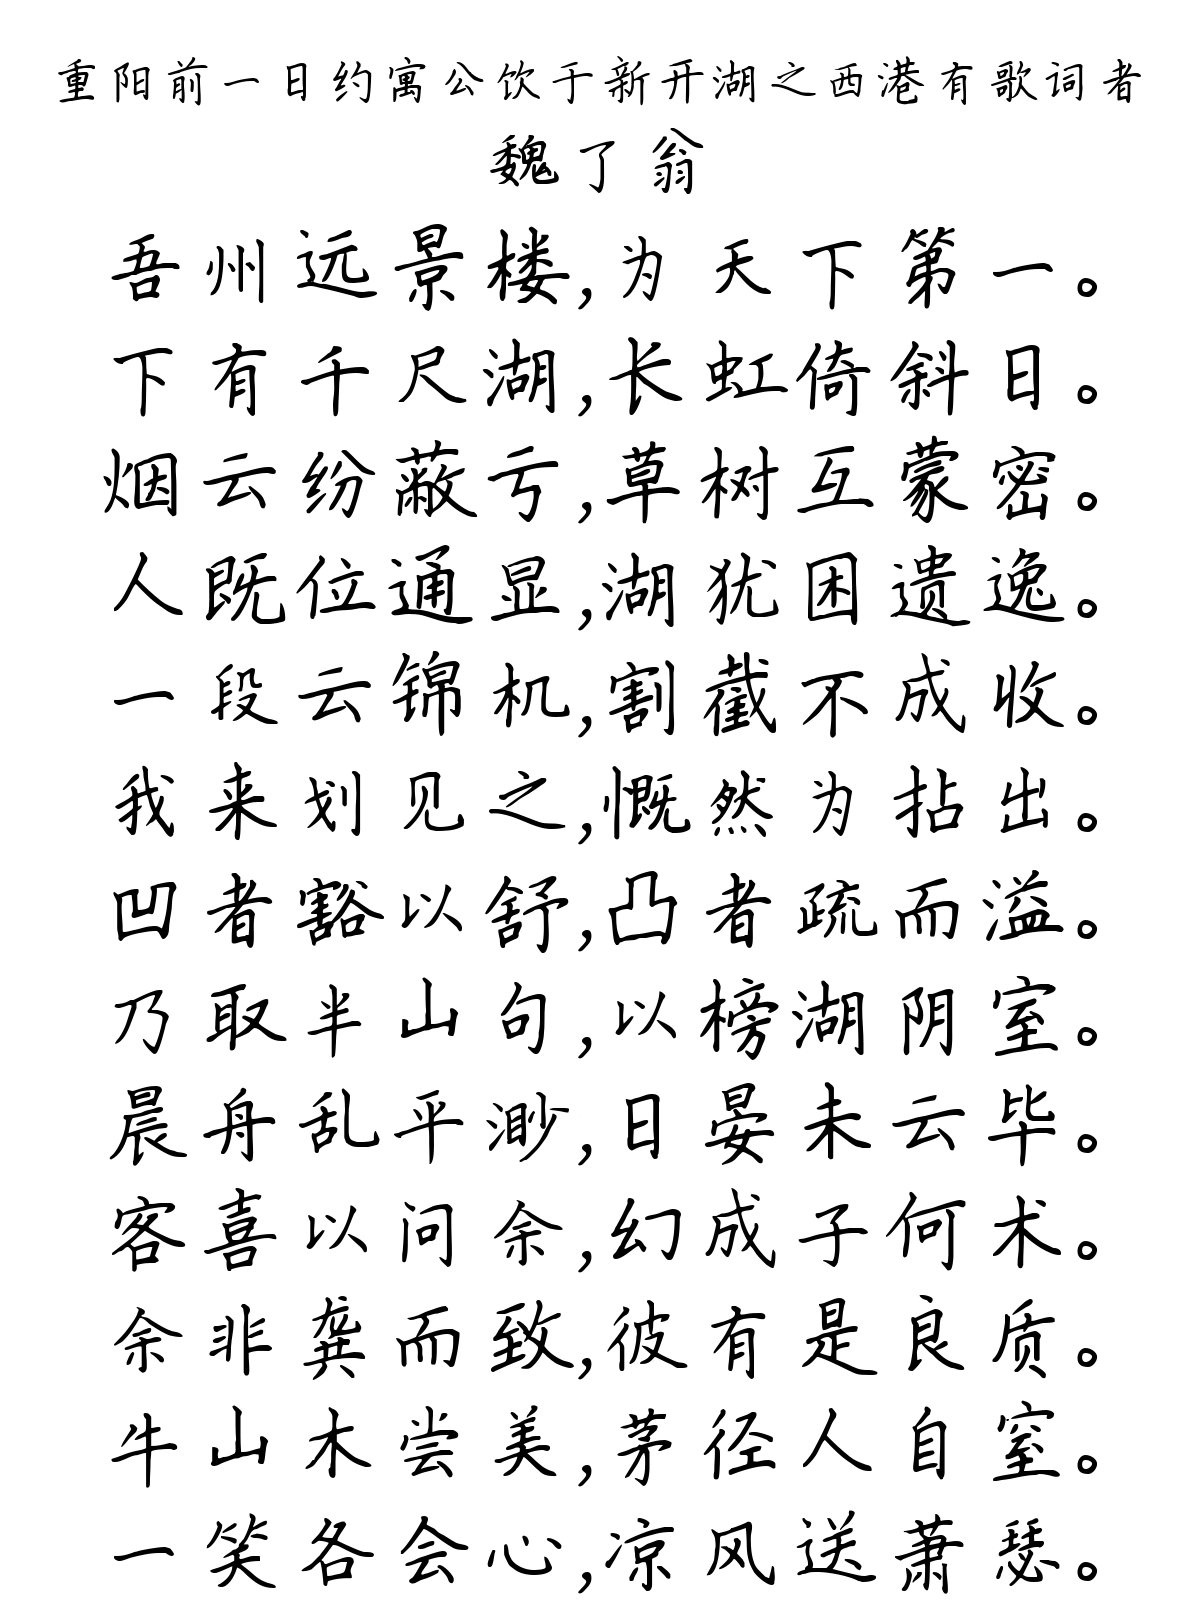 重阳前一日约寓公饮于新开湖之西港有歌词者
魏了翁
吾州远景楼,为天下第一。
下有千尺湖,长虹倚斜日。
烟云纷蔽亏,草树互蒙密。
人既位通显,湖犹困遗逸。
一段云锦机,割截不成收。
我来划见之,慨然为拈出。
凹者豁以舒,凸者疏而溢。
乃取半山句,以榜湖阴室。
晨舟乱平渺,日晏未云毕。
客喜以问余,幻成子何术。
余非龚而致,彼有是良质。
牛山木尝美,茅径人自窒。
一笑各会心,凉风送萧瑟。